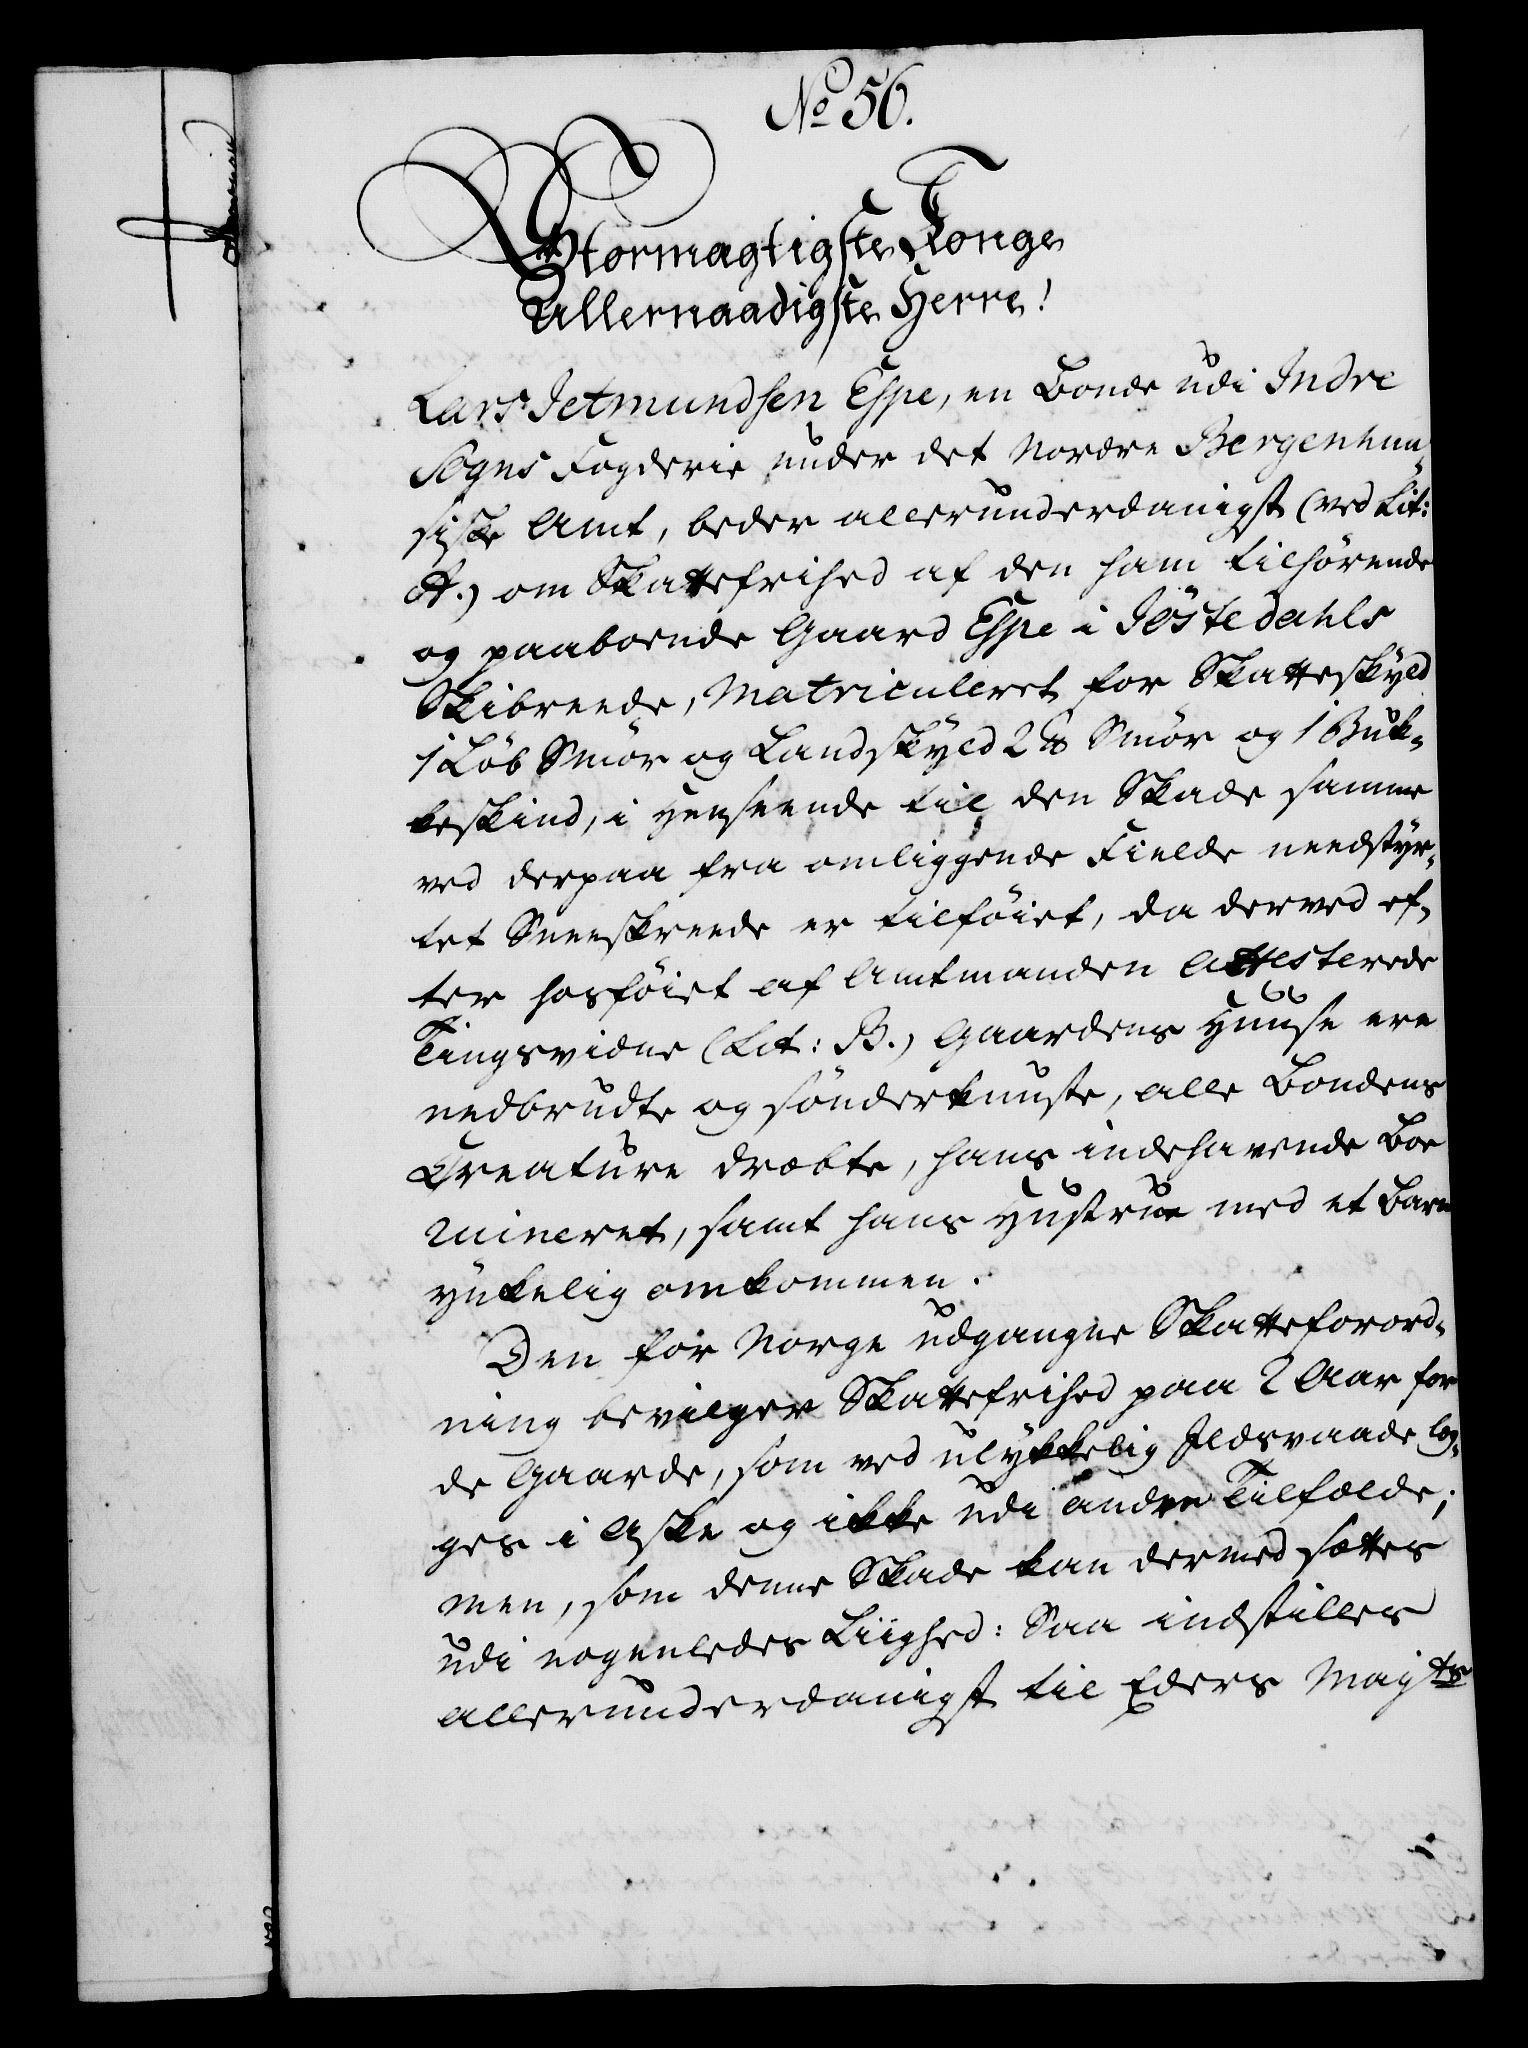 No 56.
Stormægtigste Konge
Allernaadigste Herre!
Lars Jetmundsen Espe, en Bonde udi Indre
Sogns Fogderie under det Nordre Bergenhuu-
siske Amt, beder allerunderdanigst (ved Lit:
A.) om Skattefrihed af den ham tilhørende
og paaboende Gaard Espe i Jöstedahls
Skibreede, Matriculeret for Skatteskyld
1 Løb Smör og Landskyld 2 ℔ Smör og 1 Buk-
keskind, i Henseende til den Skade samme
ved derpaa fra omliggende Fielde needstyr-
tet Sneeskreede er tilföiet, da derved ef-
ter hosföiet af Amtmanden attesterede
Tingsvidne (Lit: B.) Gaardens Huuse ere
nedbrudte og sönderknuste, alle Bondens
Creature dræbte, hans indehavende Boe
ruineret, samt hans Hustrue med et Barn
ynkelig omkommen.
Den for Norge udgangne Skatteforord-
ning bevilger Skattefrihed paa 2 Aar for
de Gaarde, som ved ulykkelig Ildsvaade læg-
ges i Aske og ikke udi andre Tilfælde;
men, som denne Skade kan dermed sættes
udi nogenledes Liighed: Saa indstilles
allerunderdanigst til Eders Majts